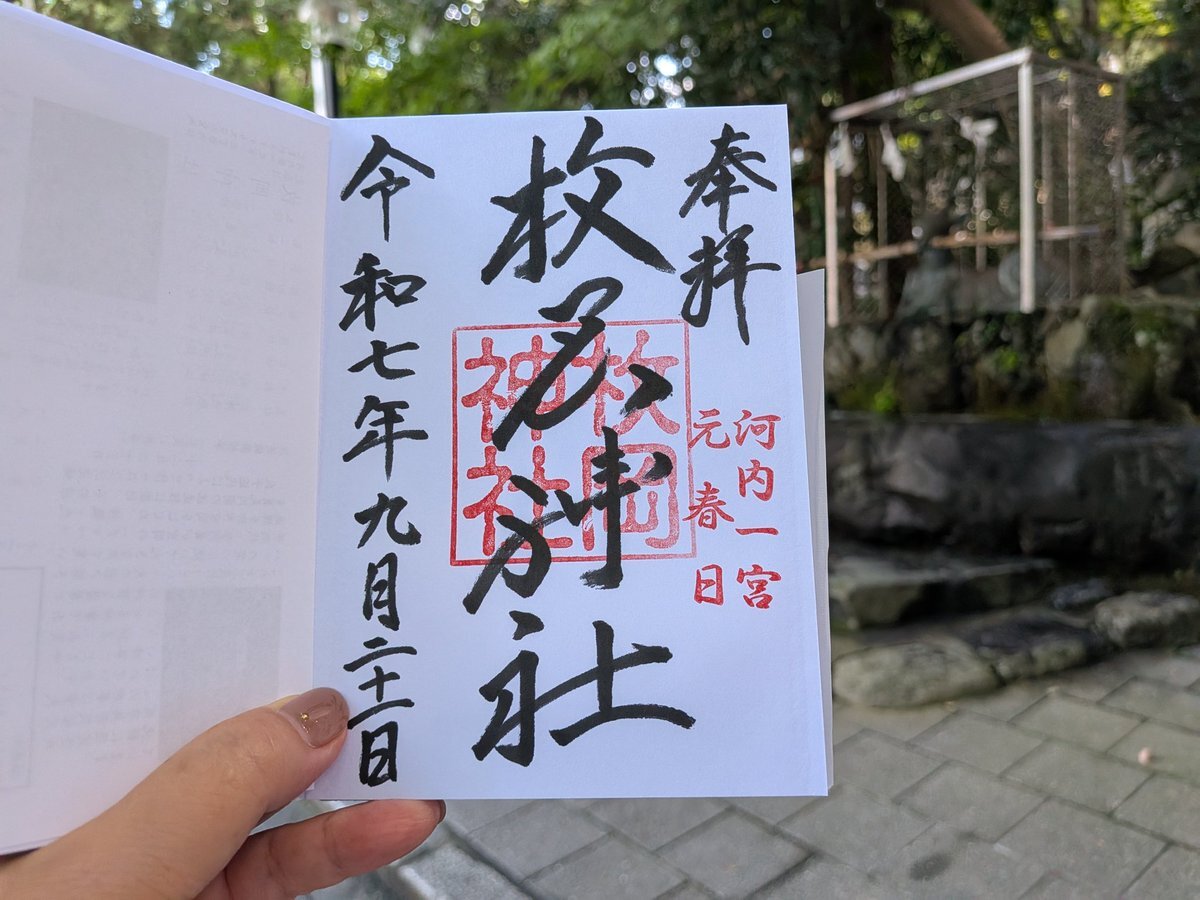 奉拝
河内一宮
元春日
枚岡神社
枚岡
神社
令和七年九月二十一日